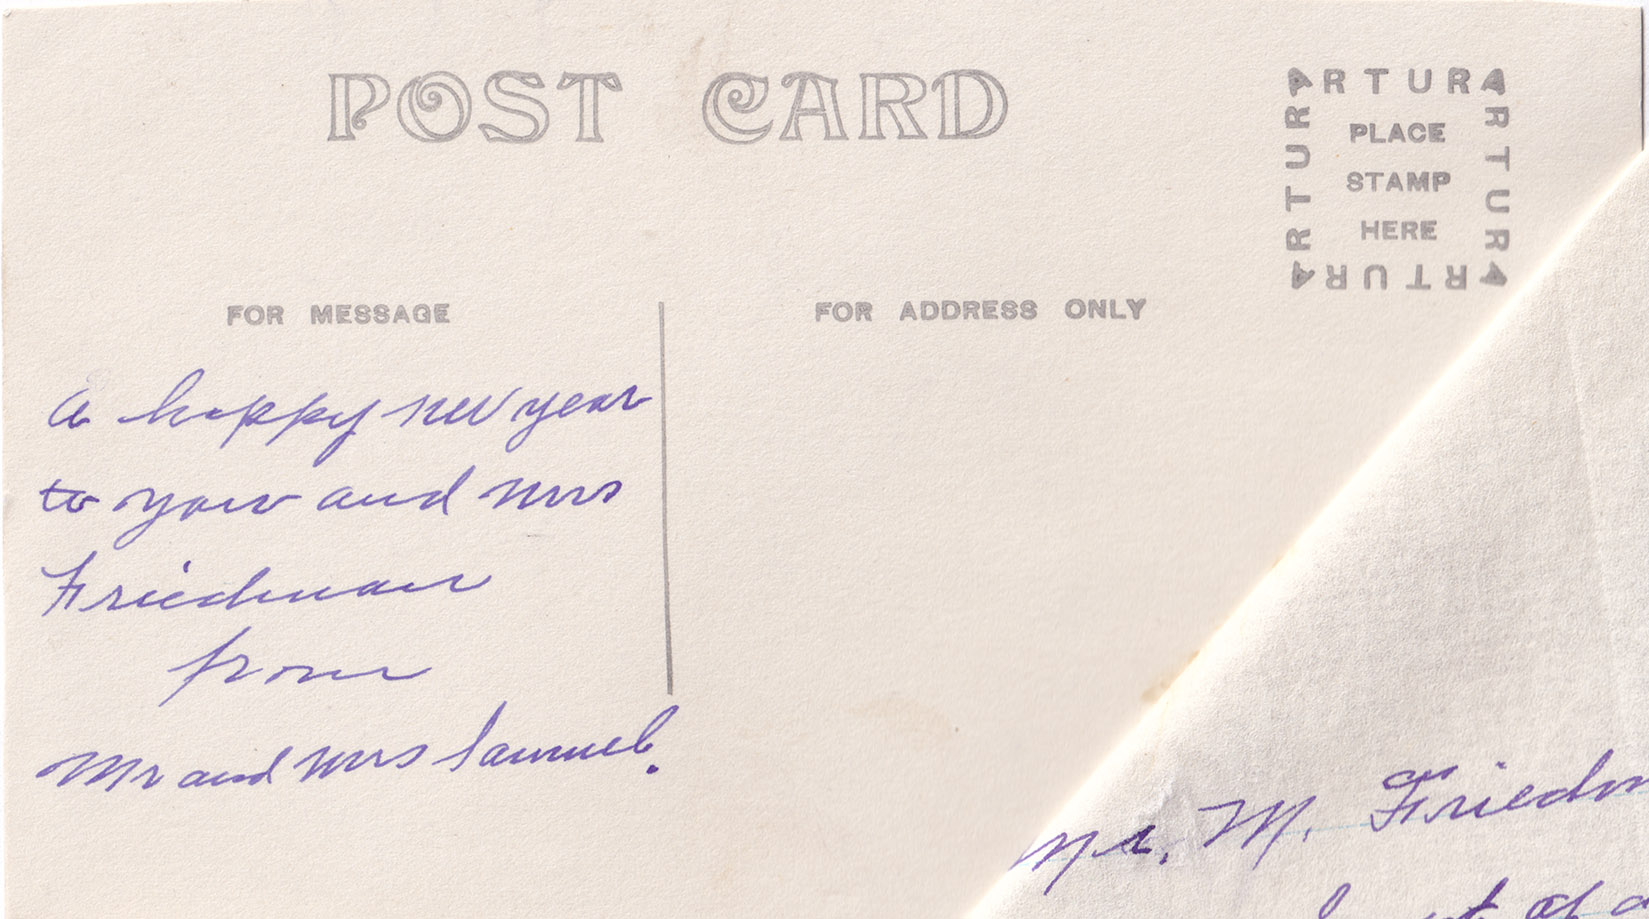 POST CARD
ARTURA
ARTURA
ARTURA
ARTURA
PLACE
STAMP
HERE
FOR MESSAGE
FOR ADDRESS ONLY
a happy new year
to you and Mrs
Friedman
from
Mr and Mrs Samuel.
Mr. M. Friedm